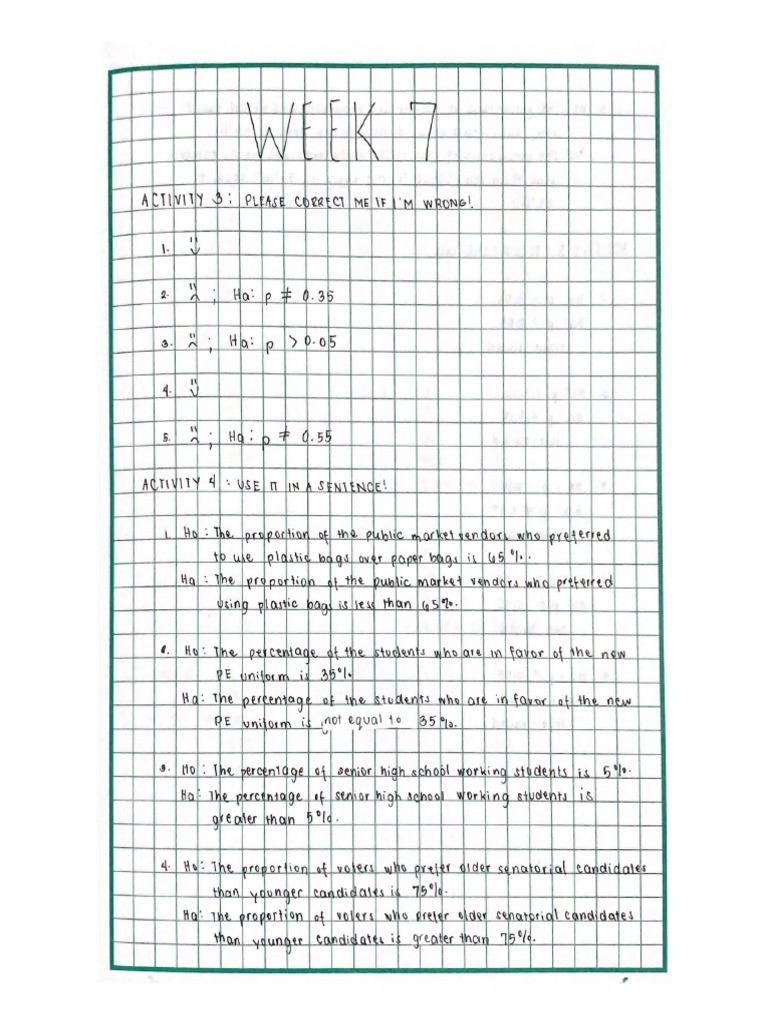 WEEK 7
ACTIVITY 3: PLEASE CORRECT ME IF I'M WRONG!
1.
2. ; Ha: p ≠ 0.35
3. ; Ha: p > 0.05
4.
5. ; Ha: p ≠ 0.55
ACTIVITY 4: USE IT IN A SENTENCE!
1. Ho: The proportion of the public market vendors who preferred
to use plastic bags over paper bags is 65%.
Ha: The proportion of the public market vendors who preferred
using plastic bags is less than 65%.
2. Ho: The percentage of the students who are in favor of the new
PE uniform is 35%.
Ha: The percentage of the students who are in favor of the new
PE uniform is not equal to 35%.
3. Ho: The percentage of senior high school working students is 5%.
Ha: The percentage of senior high school working students is
greater than 5%.
4. Ho: The proportion of voters who prefer older senatorial candidates
than younger candidates is 75%.
Ha: The proportion of voters who prefer older senatorial candidates
than younger candidates is greater than 75%.